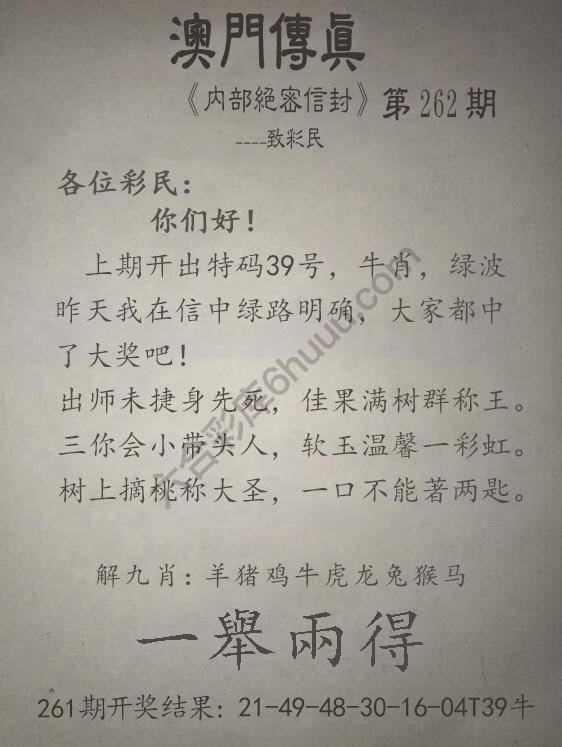 澳門傳眞
《内部絕密信封》第262期
----致彩民
各位彩民：
你们好！
上期开出特码39号，牛肖，绿波
昨天我在信中绿路明确，大家都中
了大奖吧！
出师未捷身先死，佳果满树群称王。
三你会小带头人，软玉温馨一彩虹。
树上摘桃称大圣，一口不能著两匙。
解九肖：羊猪鸡牛虎龙兔猴马
一舉兩得
261期开奖结果：21-49-48-30-16-04T39牛
六合彩库6huuu.com